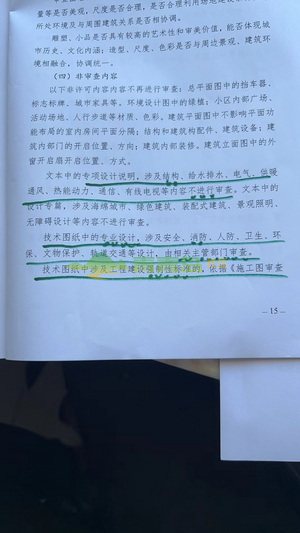 量等是否美观，尺度是否合理，是否合理利用场地建设
所处环境及与周围建筑关系是否相协调。
雕塑、小品是否具有较高的艺术性和审美价值，能否体现城
市历史、文化内涵；造型、尺度、色彩是否与周边景观、建筑环
境相融合，协调统一。
（四）非审查内容
以下非许可内容内容不再进行审查：总平面图中的挡车器、
标志标牌、城市家具等。环境设计图中的绿植；小区内部广场、
活动场地、人行步道等材质、色彩。建筑平面图中不影响平面功
能布局的室内房间平面分隔；结构和建筑构配件、建筑设备；建
筑内部门的开启位置、方向；建筑内部装修。建筑立面图中的外
窗开启扇开启位置、方式。
文本中的专项设计说明，涉及结构、给水排水、电气、供暖
通风、热能动力、通信、有线电视等内容不进行审查。文本中的
设计专篇，涉及海绵城市、绿色建筑、装配式建筑、景观照明、
无障碍设计等内容不进行审查。
技术图纸中的专业设计，涉及安全、消防、人防、卫生、环
保、文物保护、轨道交通等设计，由相关主管部门审查。
技术图纸中涉及工程建设强制性标准的，依据《施工图审查
—15—